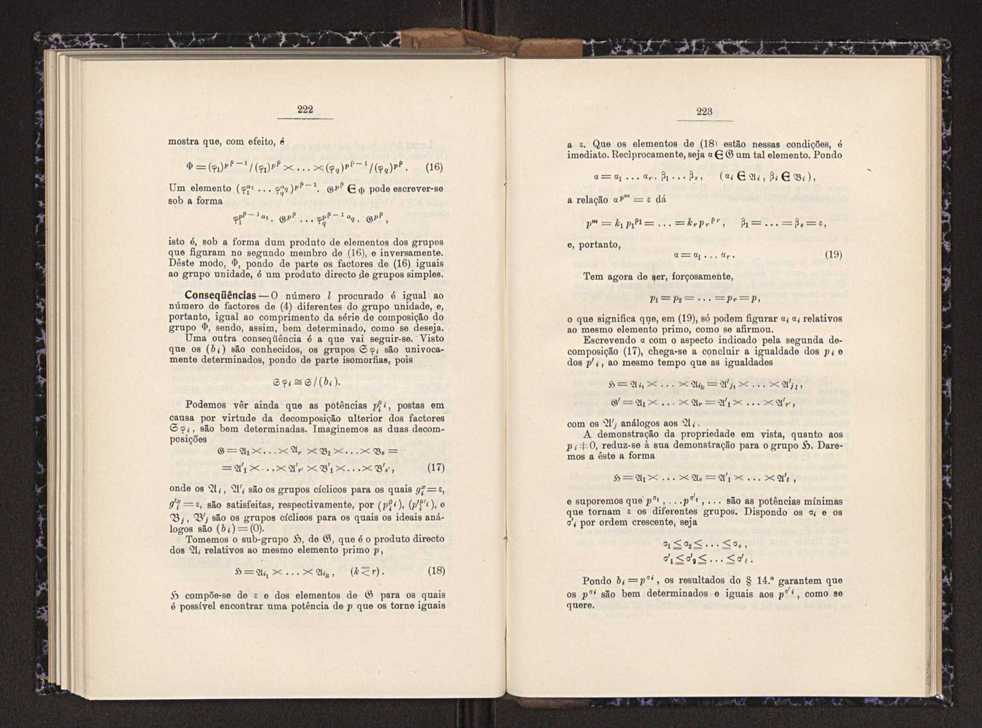 222
mostra que, com efeito, é
Φ = (φ₁)^{p^{ρ−1}} / (φ₁)^{p^ρ} × ... × (φ_q)^{p^{ρ−1}} / (φ_q)^{p^ρ}. (16)
Um elemento (φ₁^{α₁} ... φ_q^{α_q})^{p^{ρ−1}} . 𝔊^{p^ρ} ∈ Φ pode escrever-se
sob a forma
φ₁^{p^{ρ−1} α₁} . 𝔊^{p^ρ} ... φ_q^{p^{ρ−1} α_q} . 𝔊^{p^ρ},
isto é, sob a forma dum produto de elementos dos grupos
que figuram no segundo membro de (16), e inversamente.
Dêste modo, Φ, pondo de parte os factores de (16) iguais
ao grupo unidade, é um produto directo de grupos simples.
Conseqüências — O número l procurado é igual ao
número de factores de (4) diferentes do grupo unidade, e,
portanto, igual ao comprimento da série de composição do
grupo Φ, sendo, assim, bem determinado, como se deseja.
Uma outra conseqüência é a que vai seguir-se. Visto
que os (b_i) são conhecidos, os grupos 𝔖φ_i são univoca-
mente determinados, pondo de parte isomorfias, pois
𝔖φ_i ≅ 𝔖/(b_i).
Podemos vêr ainda que as potências p_i^{ρ_i}, postas em
causa por virtude da decomposição ulterior dos factores
𝔖φ_i, são bem determinadas. Imaginemos as duas decom-
posições
𝔊 = 𝔄₁ × ... × 𝔄_r × 𝔅₁ × ... × 𝔅_s =
= 𝔄'₁ × ... × 𝔄'_{r'} × 𝔅'₁ × ... × 𝔅'_{s'}, (17)
onde os 𝔄_i, 𝔄'_i são os grupos cíclicos para os quais g_i^ρ = ε,
g'_i^ρ = ε, são satisfeitas, respectivamente, por (p_i^{ρ_i}), (p'_i^{ρ'_i}), e
𝔅_j, 𝔅'_j são os grupos cíclicos para os quais os ideais aná-
logos são (b_i) = (0).
Tomemos o sub-grupo ℌ, de 𝔊, que é o produto directo
dos 𝔄_i relativos ao mesmo elemento primo p,
ℌ = 𝔄_{i₁} × ... × 𝔄_{i_k}, (k ≤ r). (18)
ℌ compõe-se de ε e dos elementos de 𝔊 para os quais
é possível encontrar uma potência de p que os torne iguais
223
a ε. Que os elementos de (18) estão nessas condições, é
imediato. Recìprocamente, seja α ∈ 𝔊 um tal elemento. Pondo
α = α₁ ... α_r . β₁ ... β_s, (α_i ∈ 𝔄_i, β_i ∈ 𝔅_i),
a relação α^{p^m} = ε dá
p^m = k₁ p₁^{ρ₁} = ... = k_r p_r^{ρ_r}, β₁ = ... = β_s = ε,
e, portanto,
α = α₁ ... α_r. (19)
Tem agora de ser, forçosamente,
p₁ = p₂ = ... = p_r = p,
o que significa que, em (19), só podem figurar α_i α_i relativos
ao mesmo elemento primo, como se afirmou.
Escrevendo α com o aspecto indicado pela segunda de-
composição (17), chega-se a concluir a igualdade dos p_i e
dos p'_i, ao mesmo tempo que as igualdades
ℌ = 𝔄_{i₁} × ... × 𝔄_{i_k} = 𝔄'_{j₁} × ... × 𝔄'_{j_l},
𝔊' = 𝔄₁ × ... × 𝔄_r = 𝔄'₁ × ... × 𝔄'_{r'},
com os 𝔄'_j análogos aos 𝔄_i.
A demonstração da propriedade em vista, quanto aos
p_i ≠ 0, reduz-se à sua demonstração para o grupo ℌ. Dare-
mos a êste a forma
ℌ = 𝔄₁ × ... × 𝔄_s = 𝔄'₁ × ... × 𝔄'_t,
e suporemos que p^{σ₁}, ... p^{σ'₁}, ... são as potências mínimas
que tornam ε os diferentes grupos. Dispondo os σ_i e os
σ'_i por ordem crescente, seja
σ₁ ≤ σ₂ ≤ ... ≤ σ_s,
σ'₁ ≤ σ'₂ ≤ ... ≤ σ'_t.
Pondo b_i = p^{σ_i}, os resultados do § 14.º garantem que
os p^{σ_i} são bem determinados e iguais aos p^{σ'_i}, como se
quere.